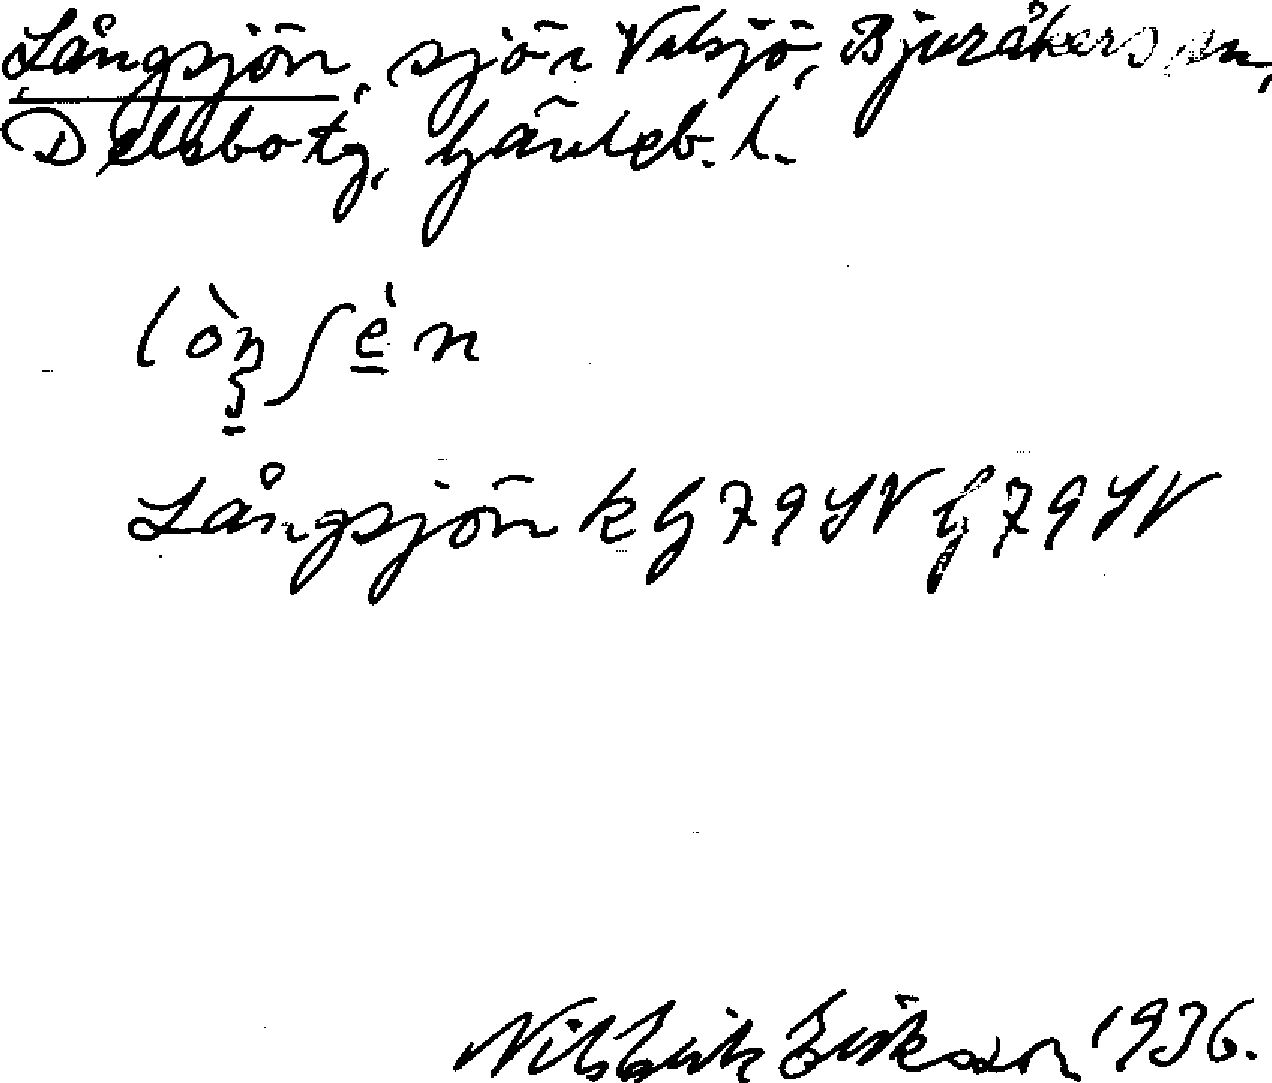 Långsjön, sjö i Valsjö, Bjuråkers sn,
Delsbo tg, Gävleb. l.
Långsjön k G 79 SV G 79 SV
Nils Erik Eriksson 1936.